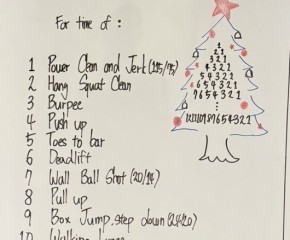 For time of :
1 Power Clean and Jerk
2 Hang Squat Clean
3 Burpee
4 Push up
5 Toes to bar
6 Deadlift
7 Wall Ball Shot (20/14)
8 Pull up
9 Box Jump, step down (24/20)
10 Walking Lunge
1
2 1
3 2 1
4 3 2 1
5 4 3 2 1
7 6 5 4 3 2 1
⋮
12 11 10 9 8 7 6 5 4 3 2 1